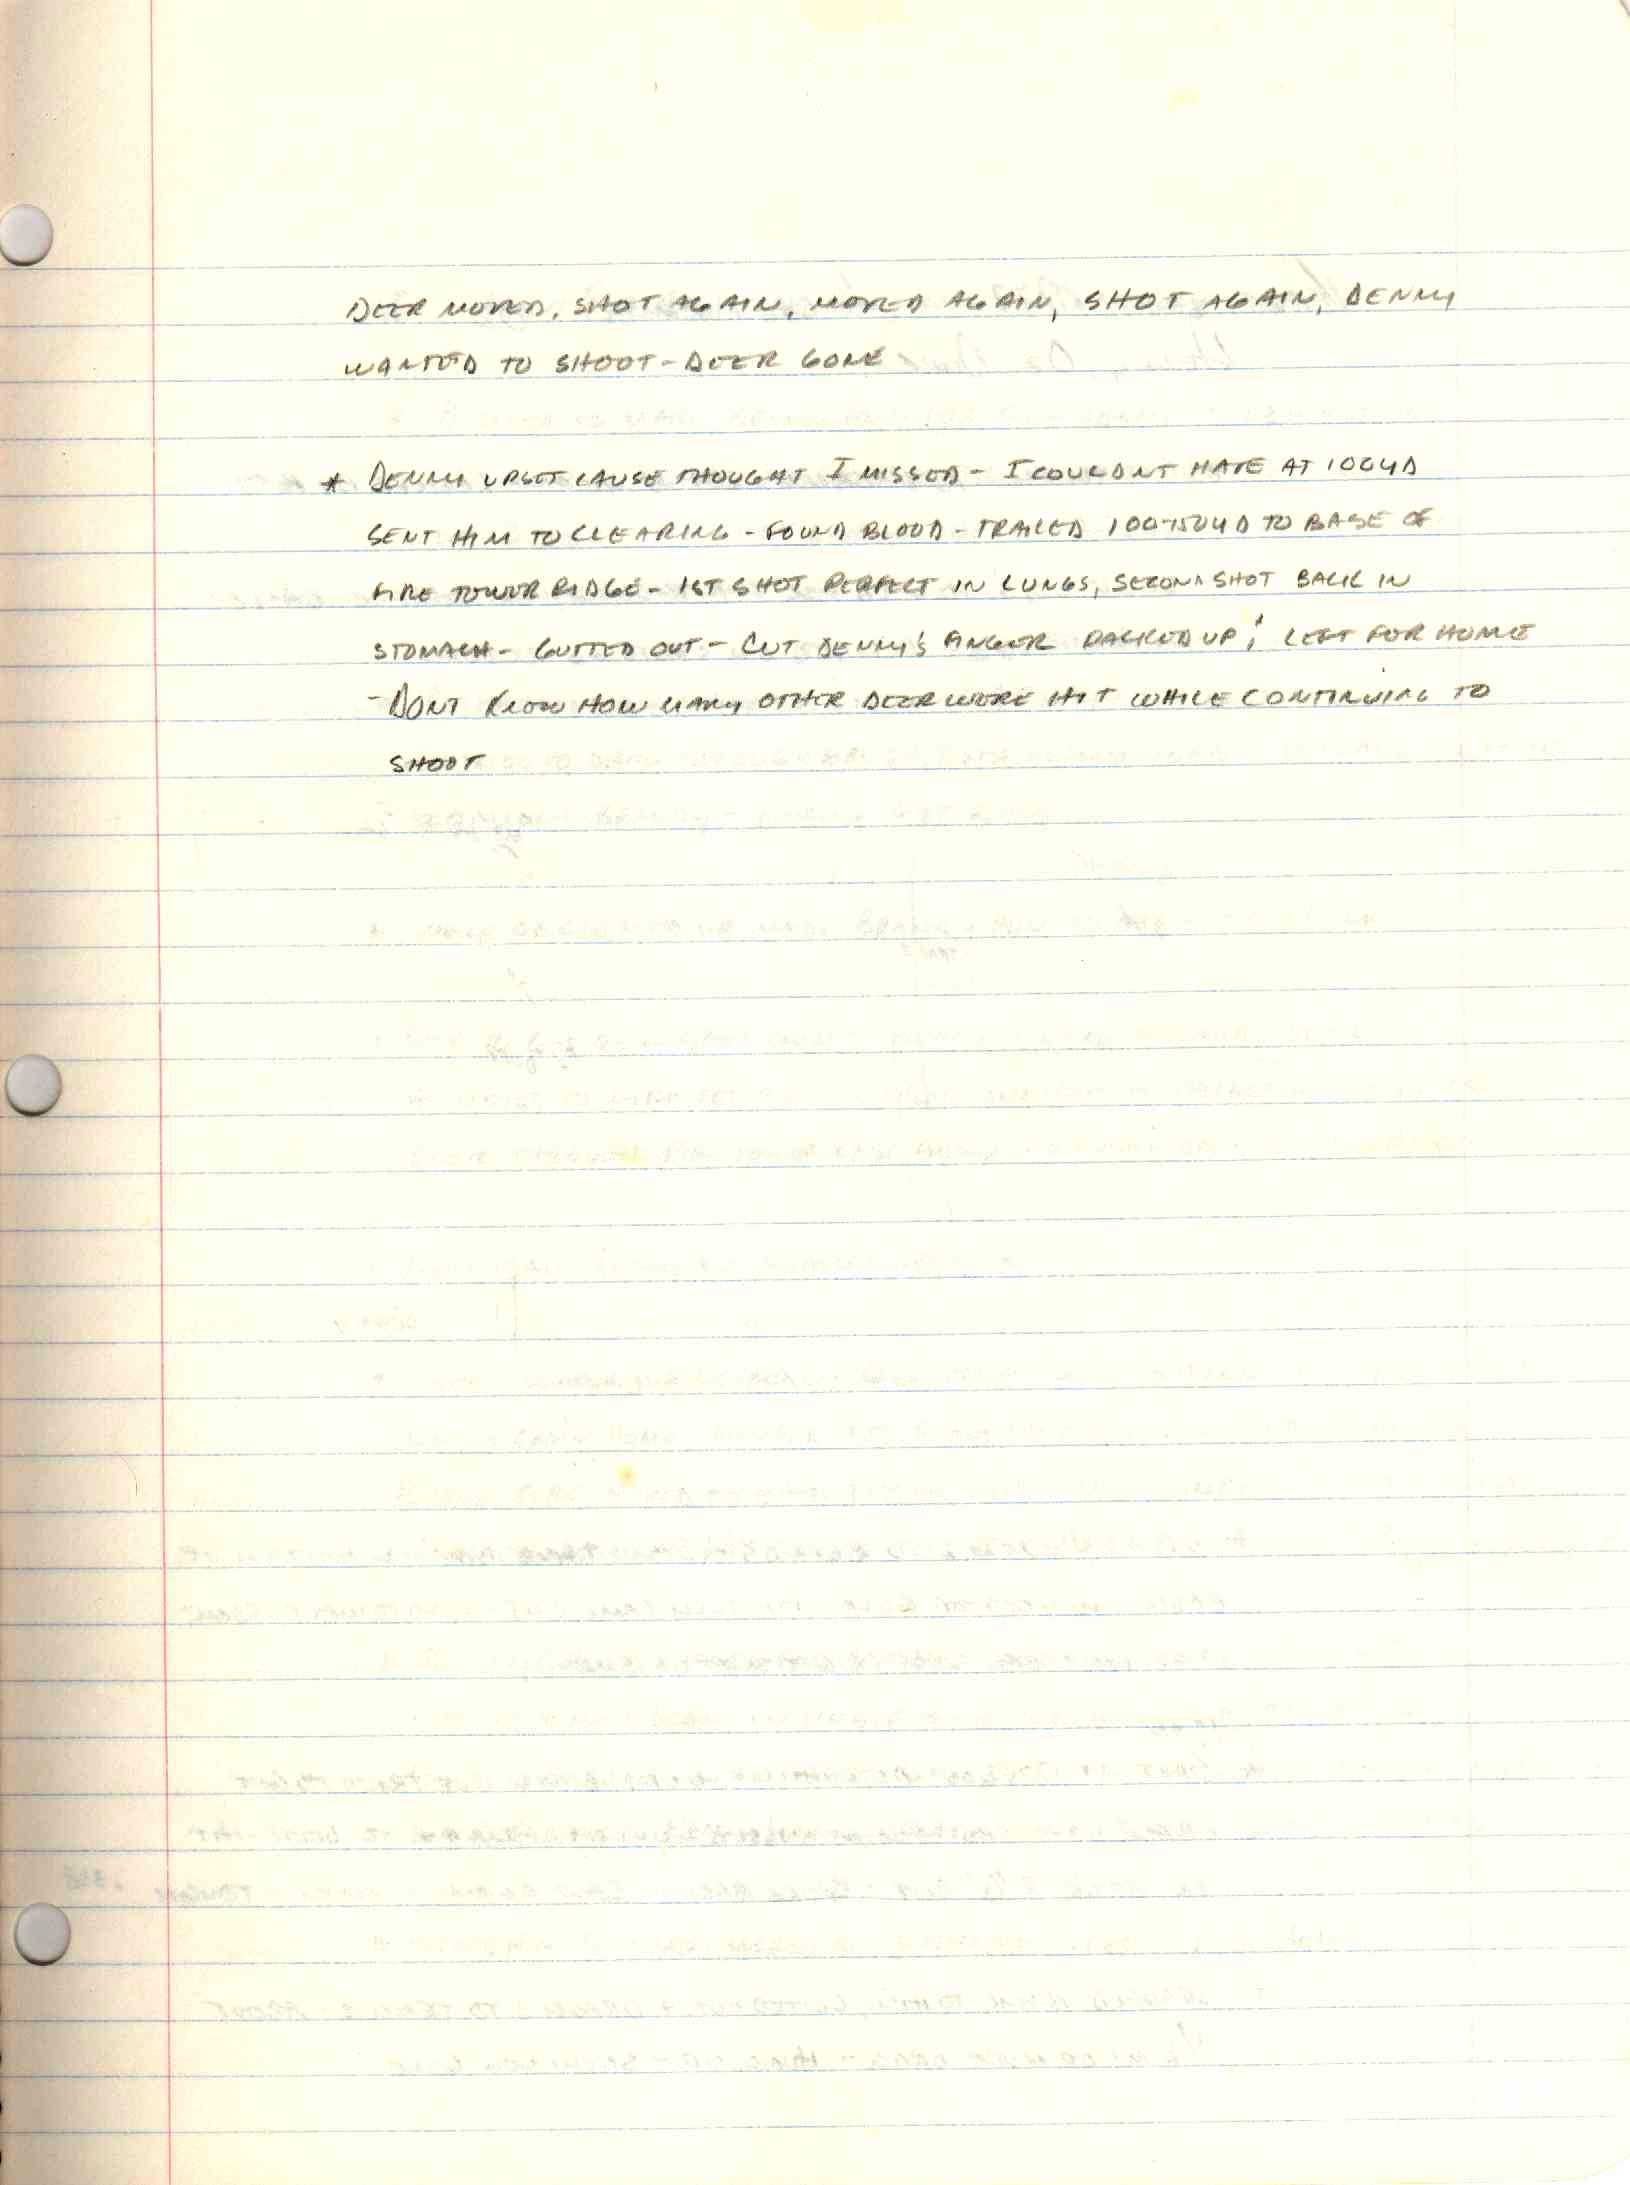 DEER MOVED, SHOT AGAIN, MOVED AGAIN, SHOT AGAIN, DENNY
WANTED TO SHOOT - DEER GONE
* DENNY UPSET CAUSE THOUGHT I MISSED - I COULDNT HAVE AT 100YD
SENT HIM TO CLEARING - FOUND BLOOD - TRAILED 100-150YD TO BASE OF
FIRE TOWER RIDGE - 1ST SHOT PERFECT IN LUNGS, SECOND SHOT BACK IN
STOMACH - GUTTED OUT - CUT DENNY'S FINGER PACKED UP & LEFT FOR HOME
- DONT KNOW HOW MANY OTHER DEER WERE HIT WHILE CONTINUING TO
SHOOT